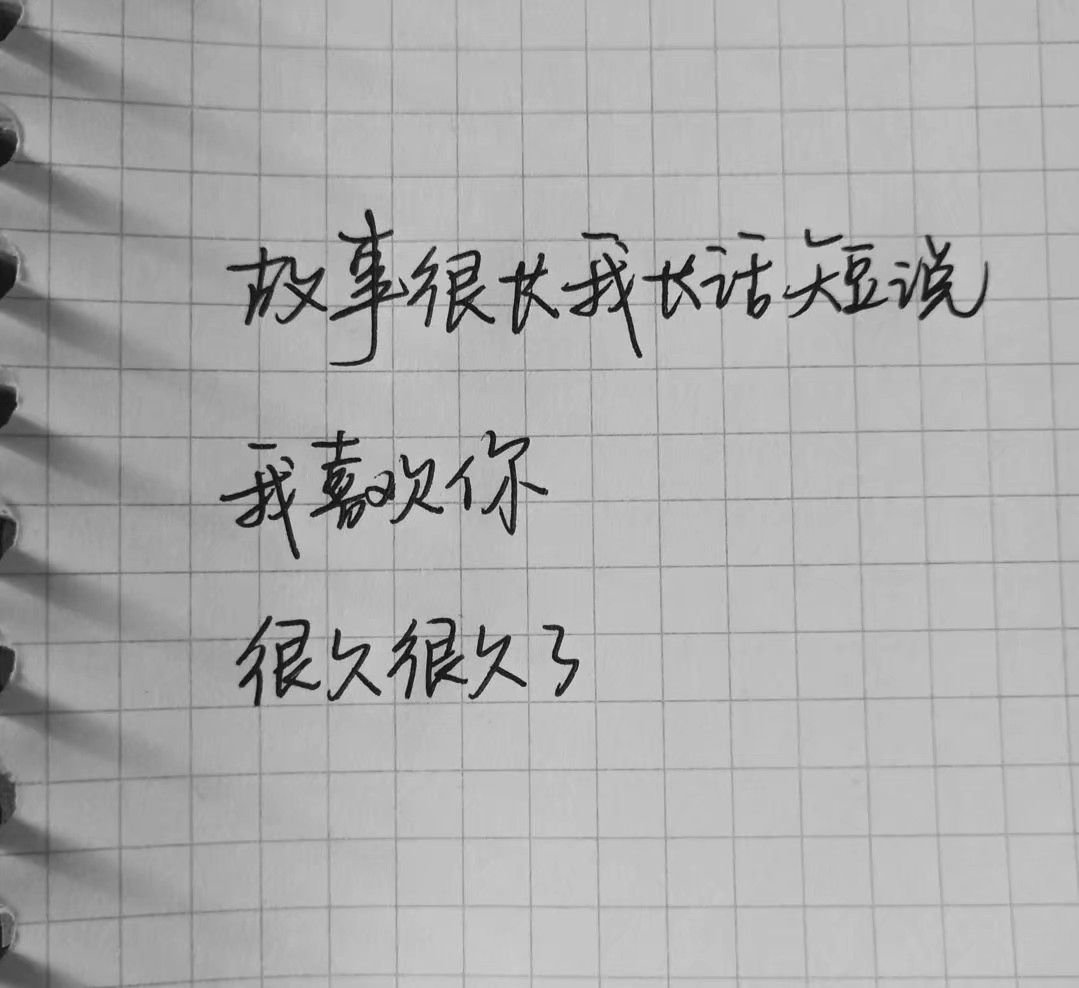 故事很长我长话短说
我喜欢你
很久很久了